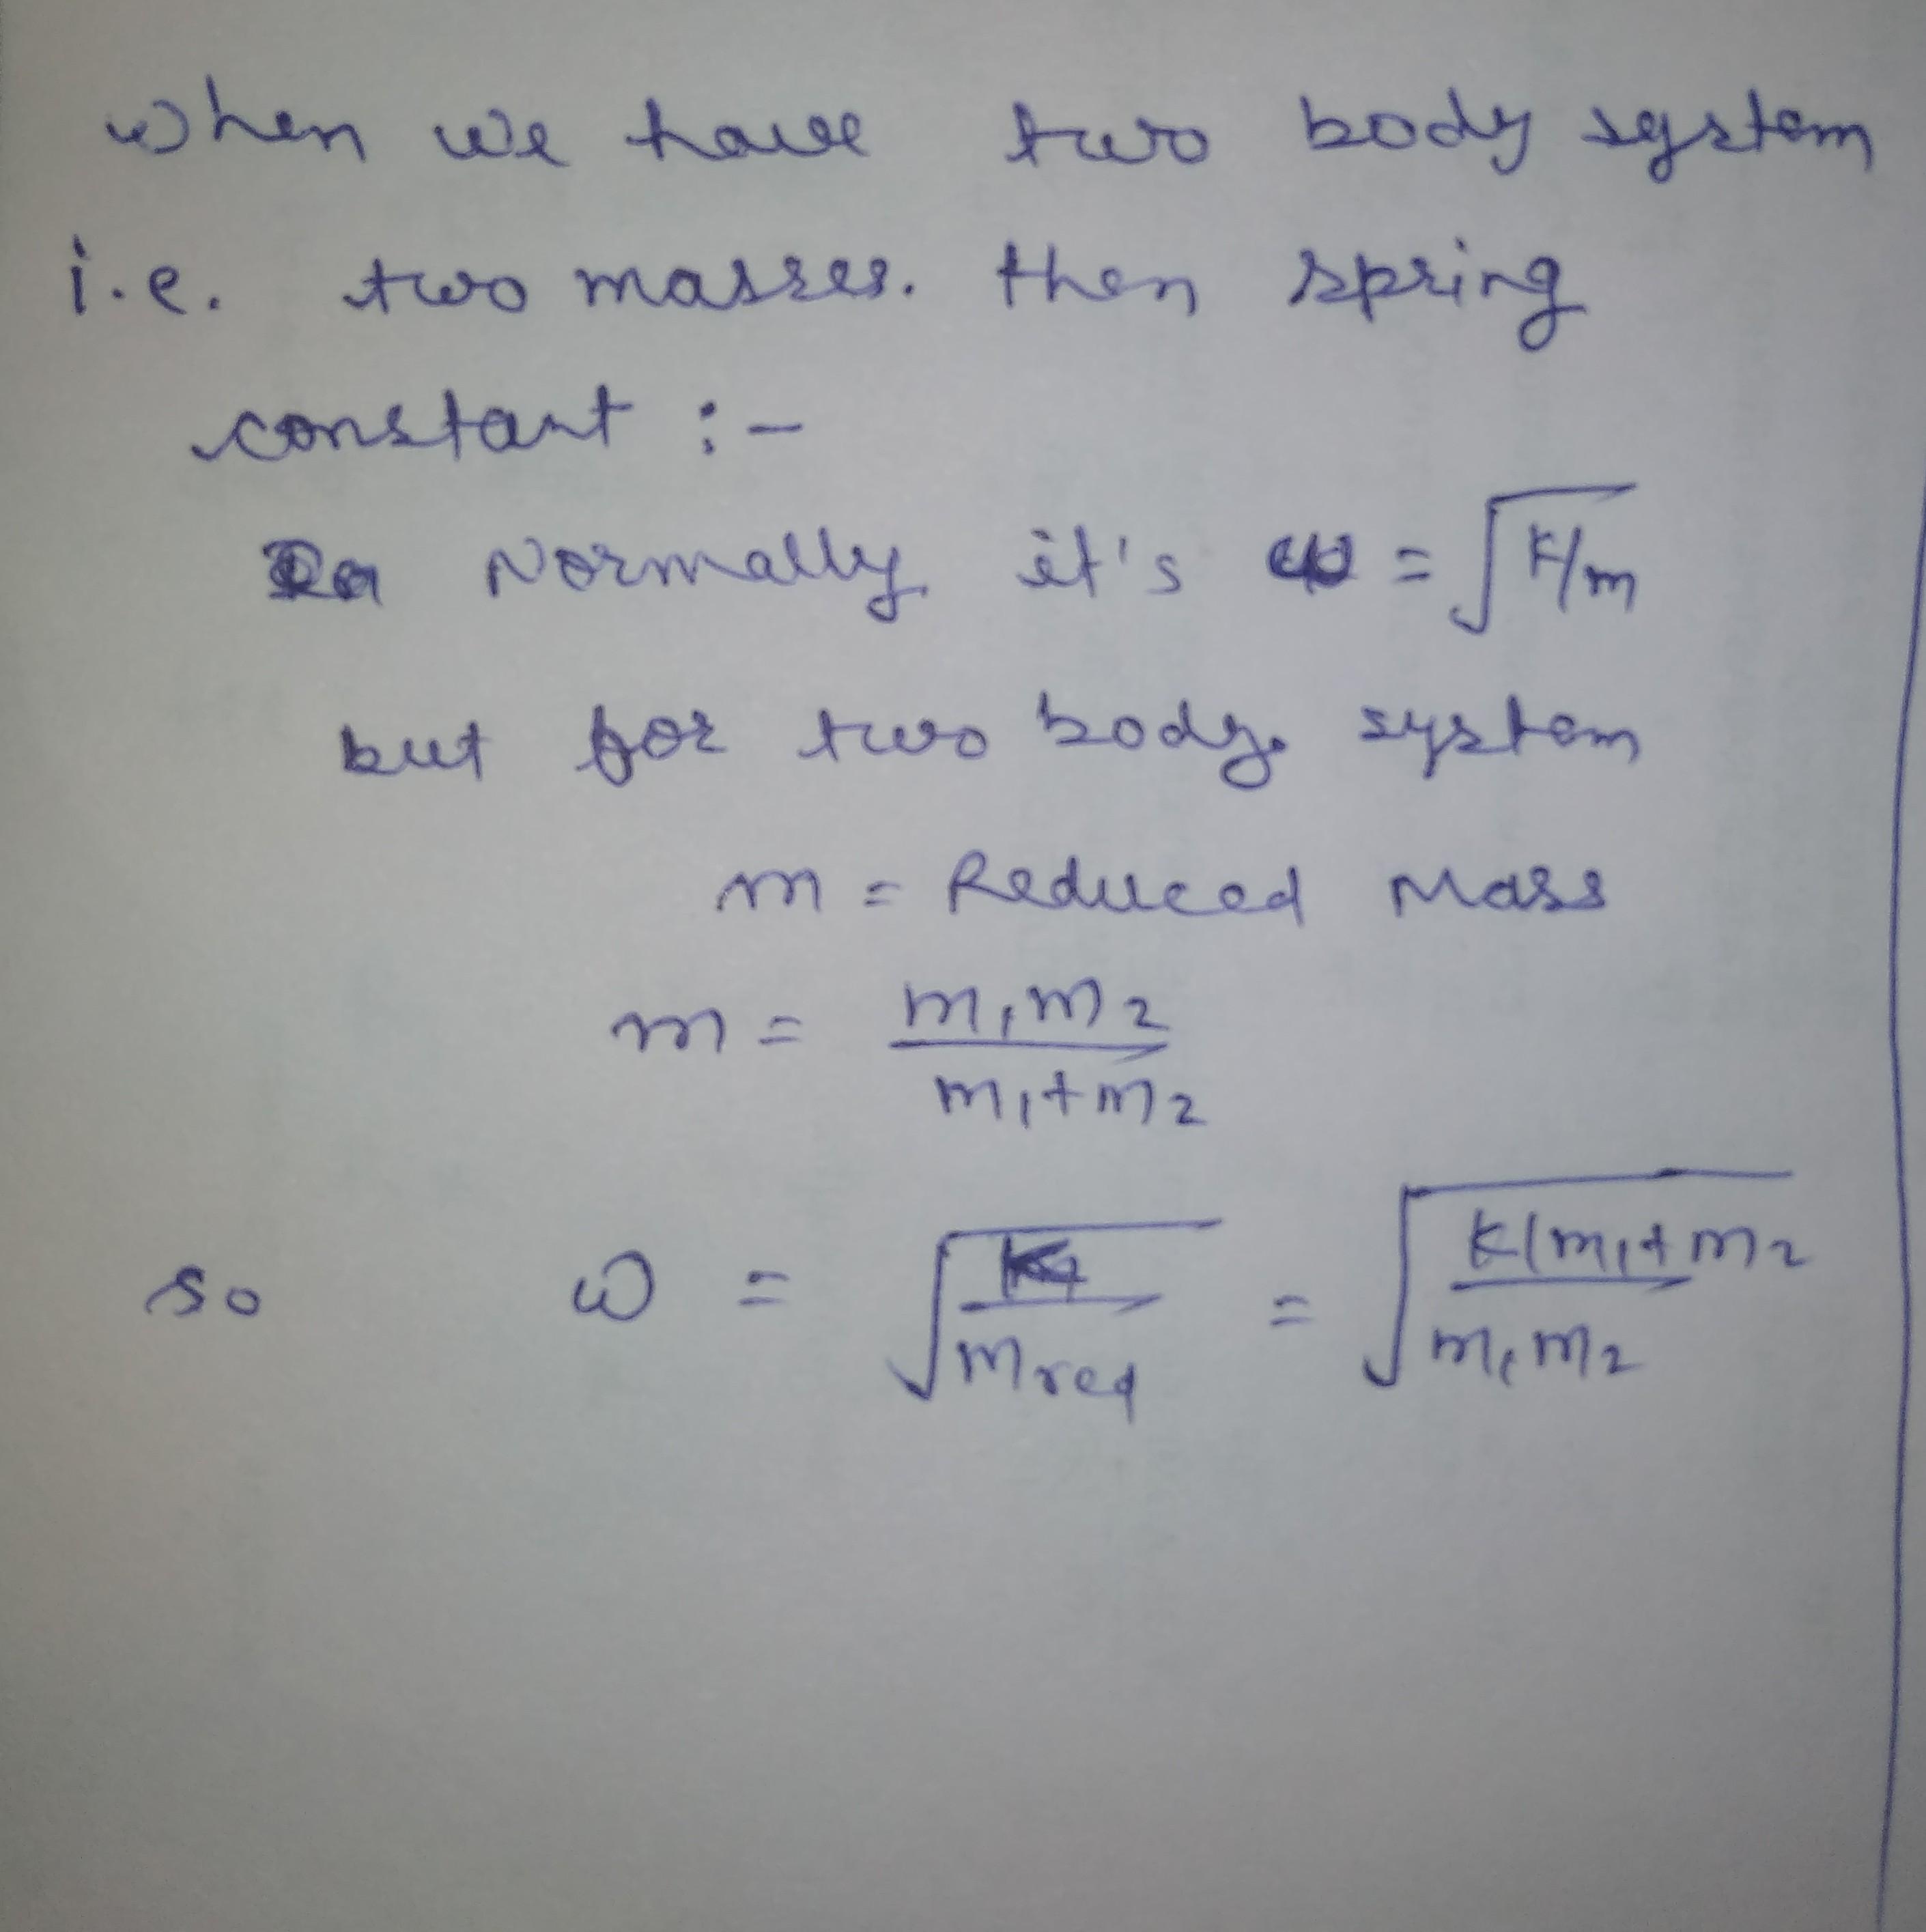 when we have two body system
i.e. two masses. then spring
constant :-
Normally it's ω = √K/m
but for two body system
m = Reduced Mass
m = m₁m₂ / m₁+m₂
so ω = √K/mred = √K(m₁+m₂ / m₁m₂